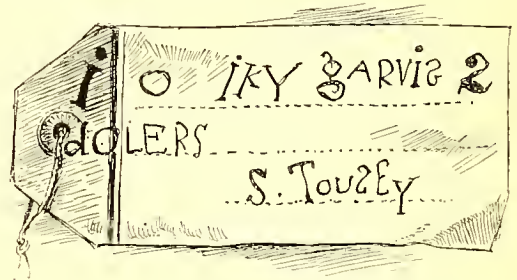 i o iKY gARViS 2
dOLERS
S. TOUSEY